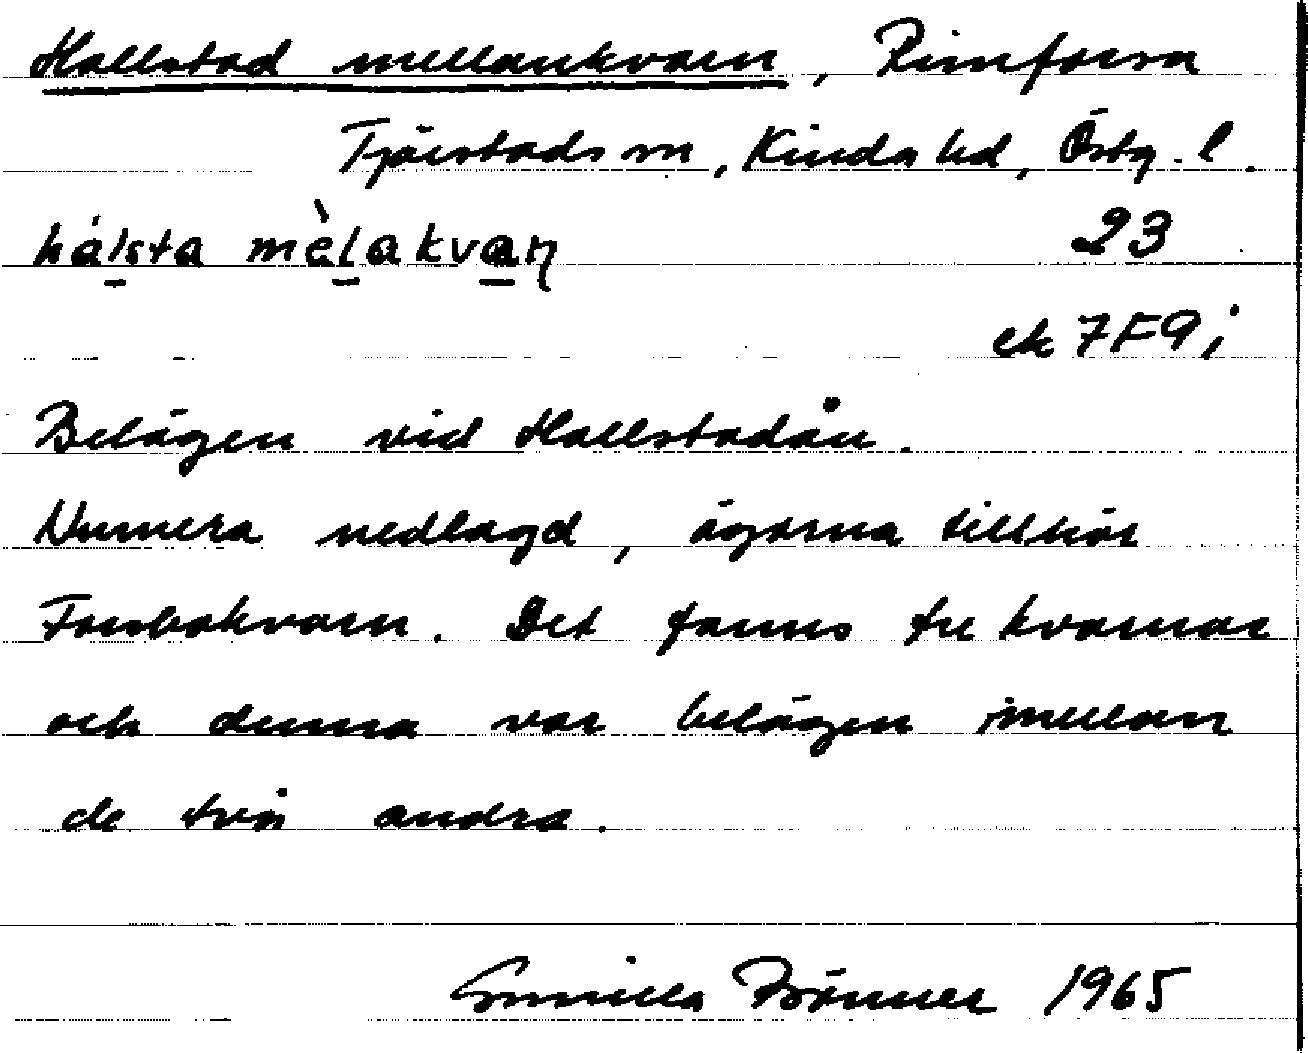 Hallstad mellankvarn, Rimforsa
Tjärstads sn, Kinda hd, Östg. l.
hálsta mèlakvaɳ 23
ek 7F9i
Belägen vid Hallstadån.
Numera nedlagd, ägorna tillhör
Forsbokvarn. Det fanns tre kvarnar
och denna var belägen imellan
de två andra.
Gunilla Brönner 1965